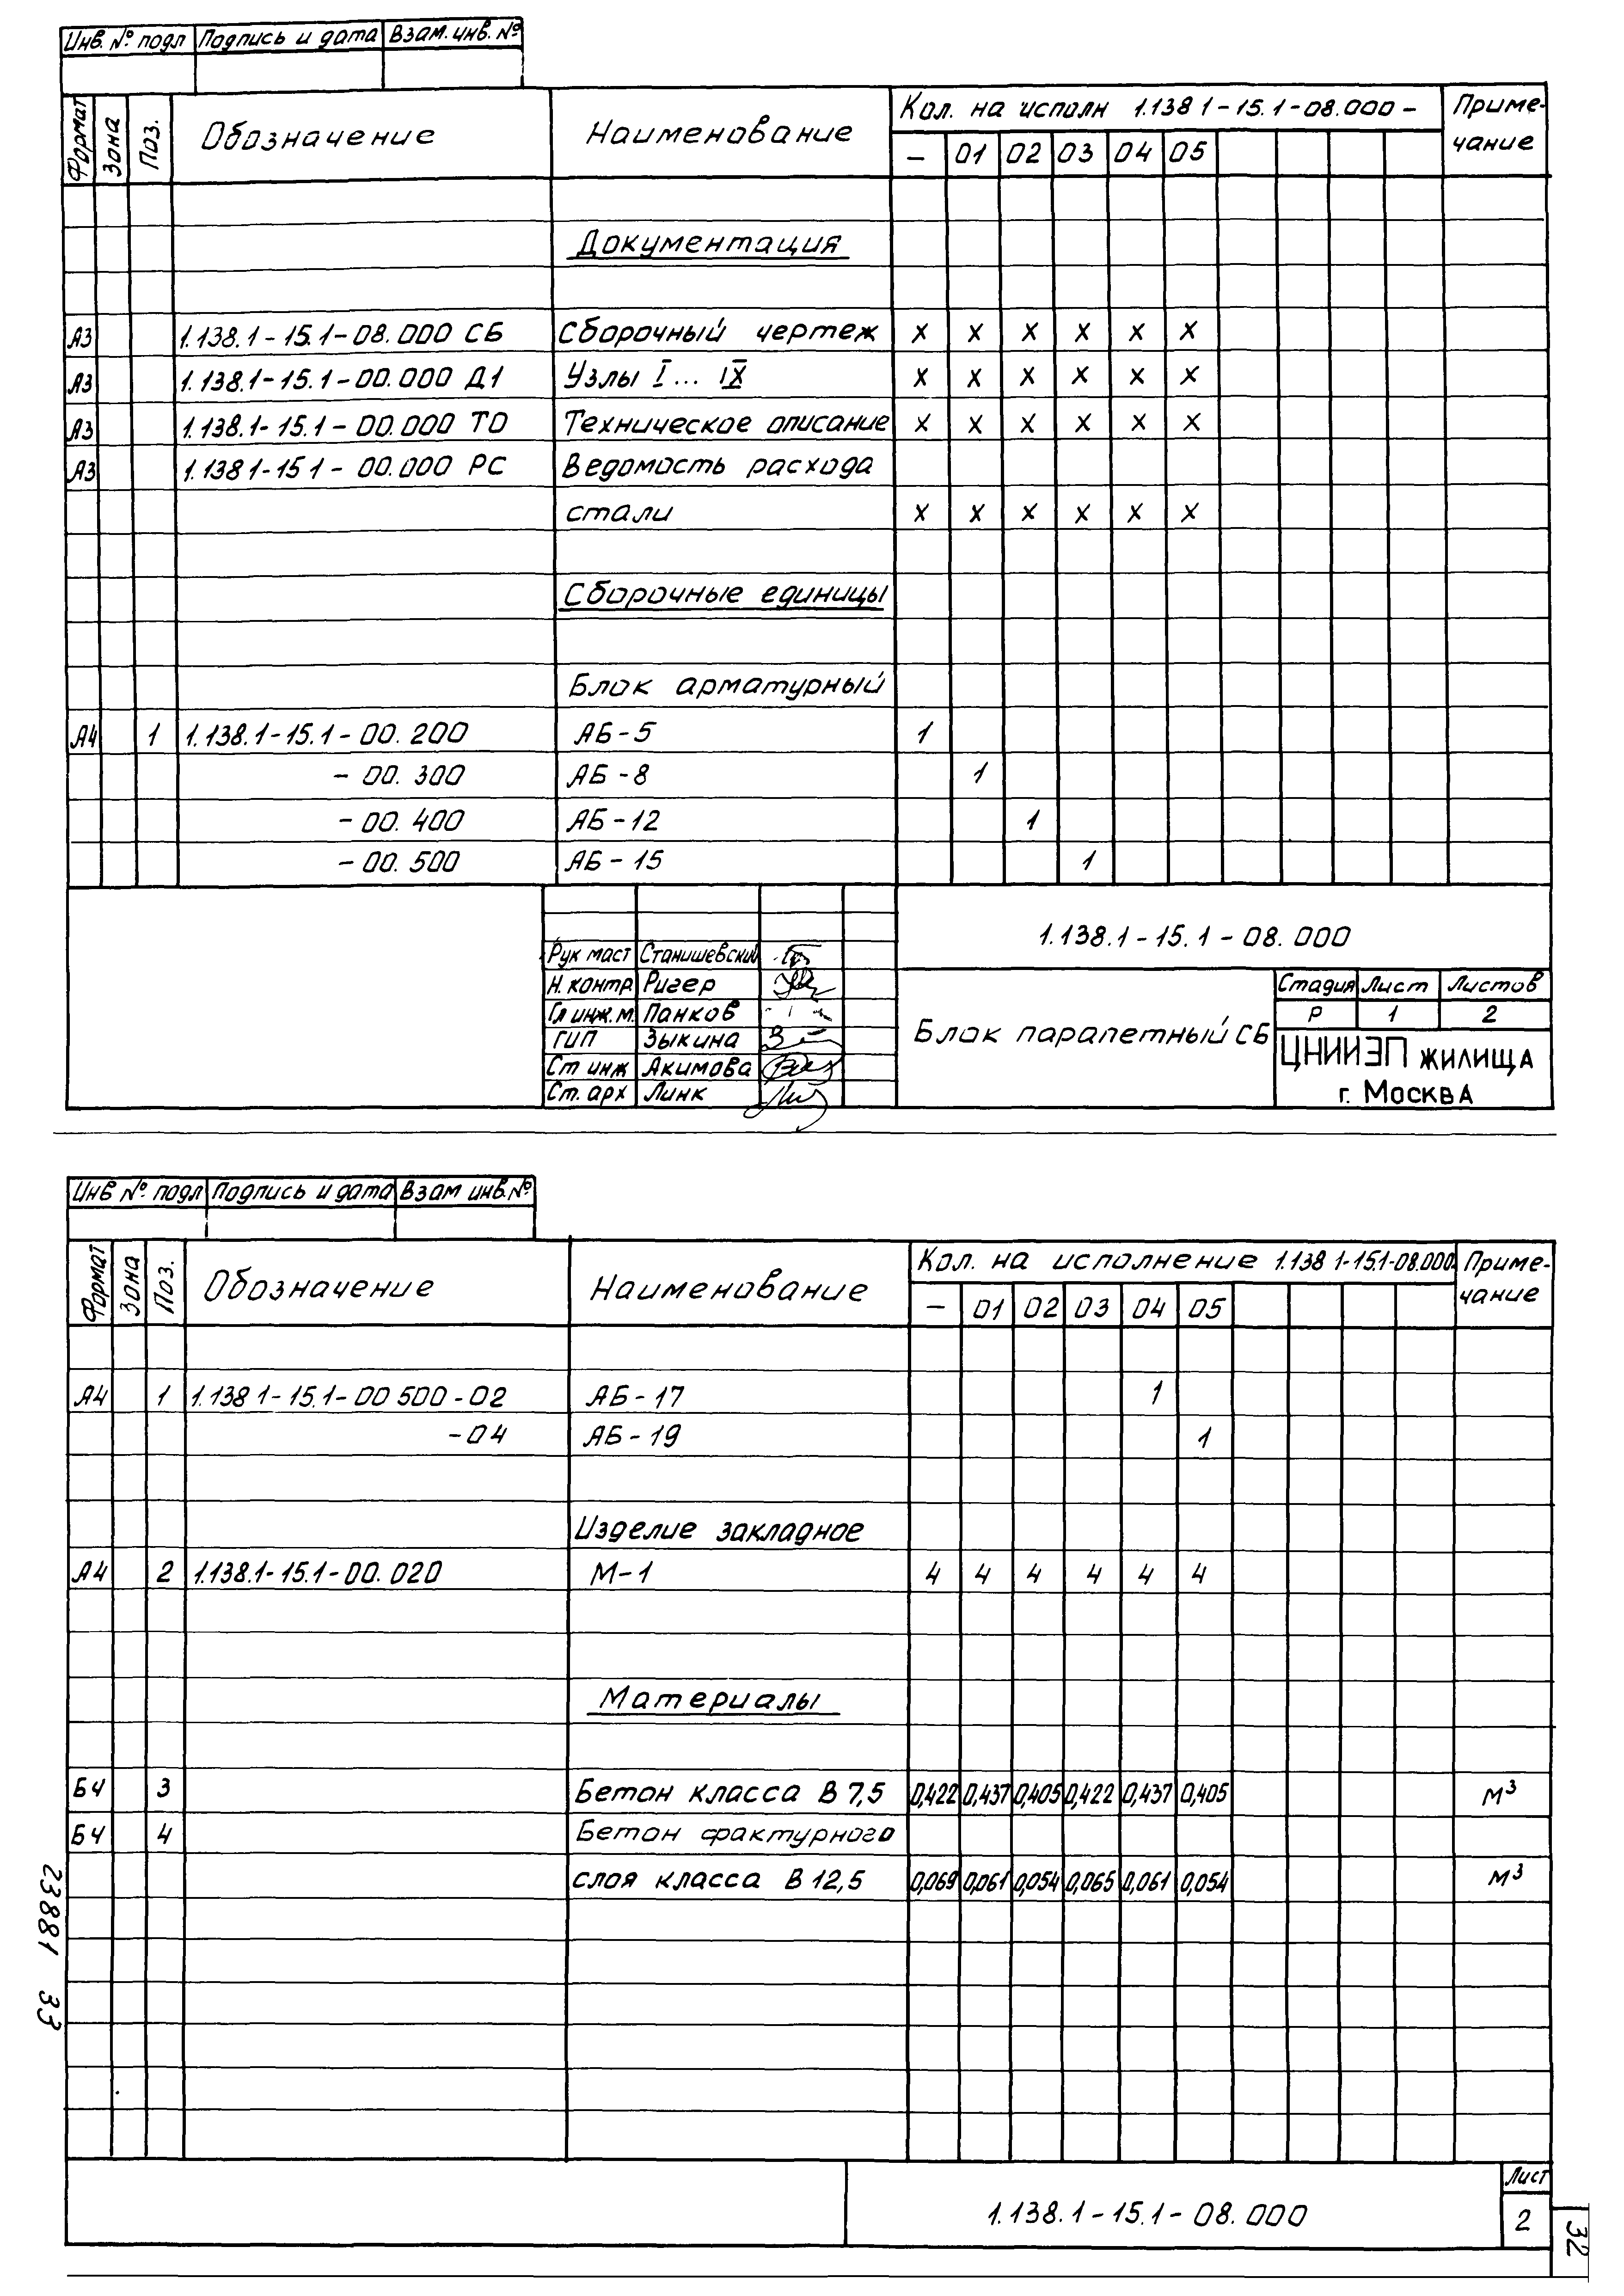 Инв. № подл Подпись и дата Взам. инв. №
Формат Зона Поз. Обозначение Наименование Кол. на исполн 1.138 1-15.1-08.000- Приме-
чание
- 01 02 03 04 05
Документация
А3 1.138.1-15.1-08.000 СБ Сборочный чертеж х х х х х х
А3 1.138.1-15.1-00.000 Д1 Узлы I... IX х х х х х х
А3 1.138.1-15.1-00.000 ТО Техническое описание х х х х х х
А3 1.138 1-15 1-00.000 РС Ведомость расхода
стали х х х х х х
Сборочные единицы
Блок арматурный
А4 1 1.138.1-15.1-00.200 АБ-5 1
-00.300 АБ-8 1
-00.400 АБ-12 1
-00.500 АБ-15 1
1.138.1-15.1-08.000
Рук маст Станишевский
Н. контр Ригер
Гл инж. м. Панков
ГИП Зыкина
Ст инж Акимова
Ст. арх Линк
Блок парапетный СБ
Стадия Лист Листов
Р 1 2
ЦНИИЭП жилища
г. Москва
Инв № подл Подпись и дата Взам инв. №
Формат Зона Поз. Обозначение Наименование Кол. на исполнение 1.138 1-15.1-08.000 Приме-
чание
- 01 02 03 04 05
А4 1 1.138 1-15.1-00 500-02 АБ-17 1
-04 АБ-19 1
Изделие закладное
А4 2 1.138.1-15.1-00.020 М-1 4 4 4 4 4 4
Материалы
БЧ 3 Бетон класса В 7,5 0,422 0,437 0,405 0,422 0,437 0,405 м³
БЧ 4 Бетон фактурного
слоя класса В 12,5 0,069 0,061 0,054 0,065 0,061 0,054 м³
23881 33
1.138.1-15.1-08.000
Лист
2
32